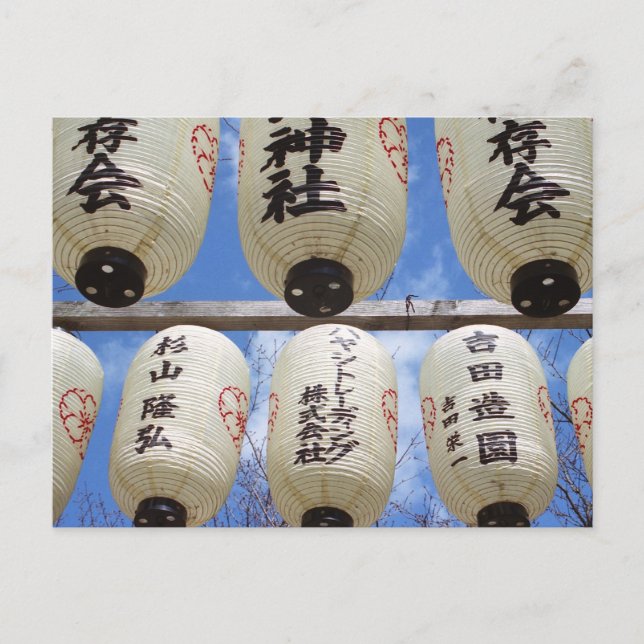 存会
神社
存会
杉山隆弘
ハヤシトレーディング
株式会社
吉田造園
吉田栄一